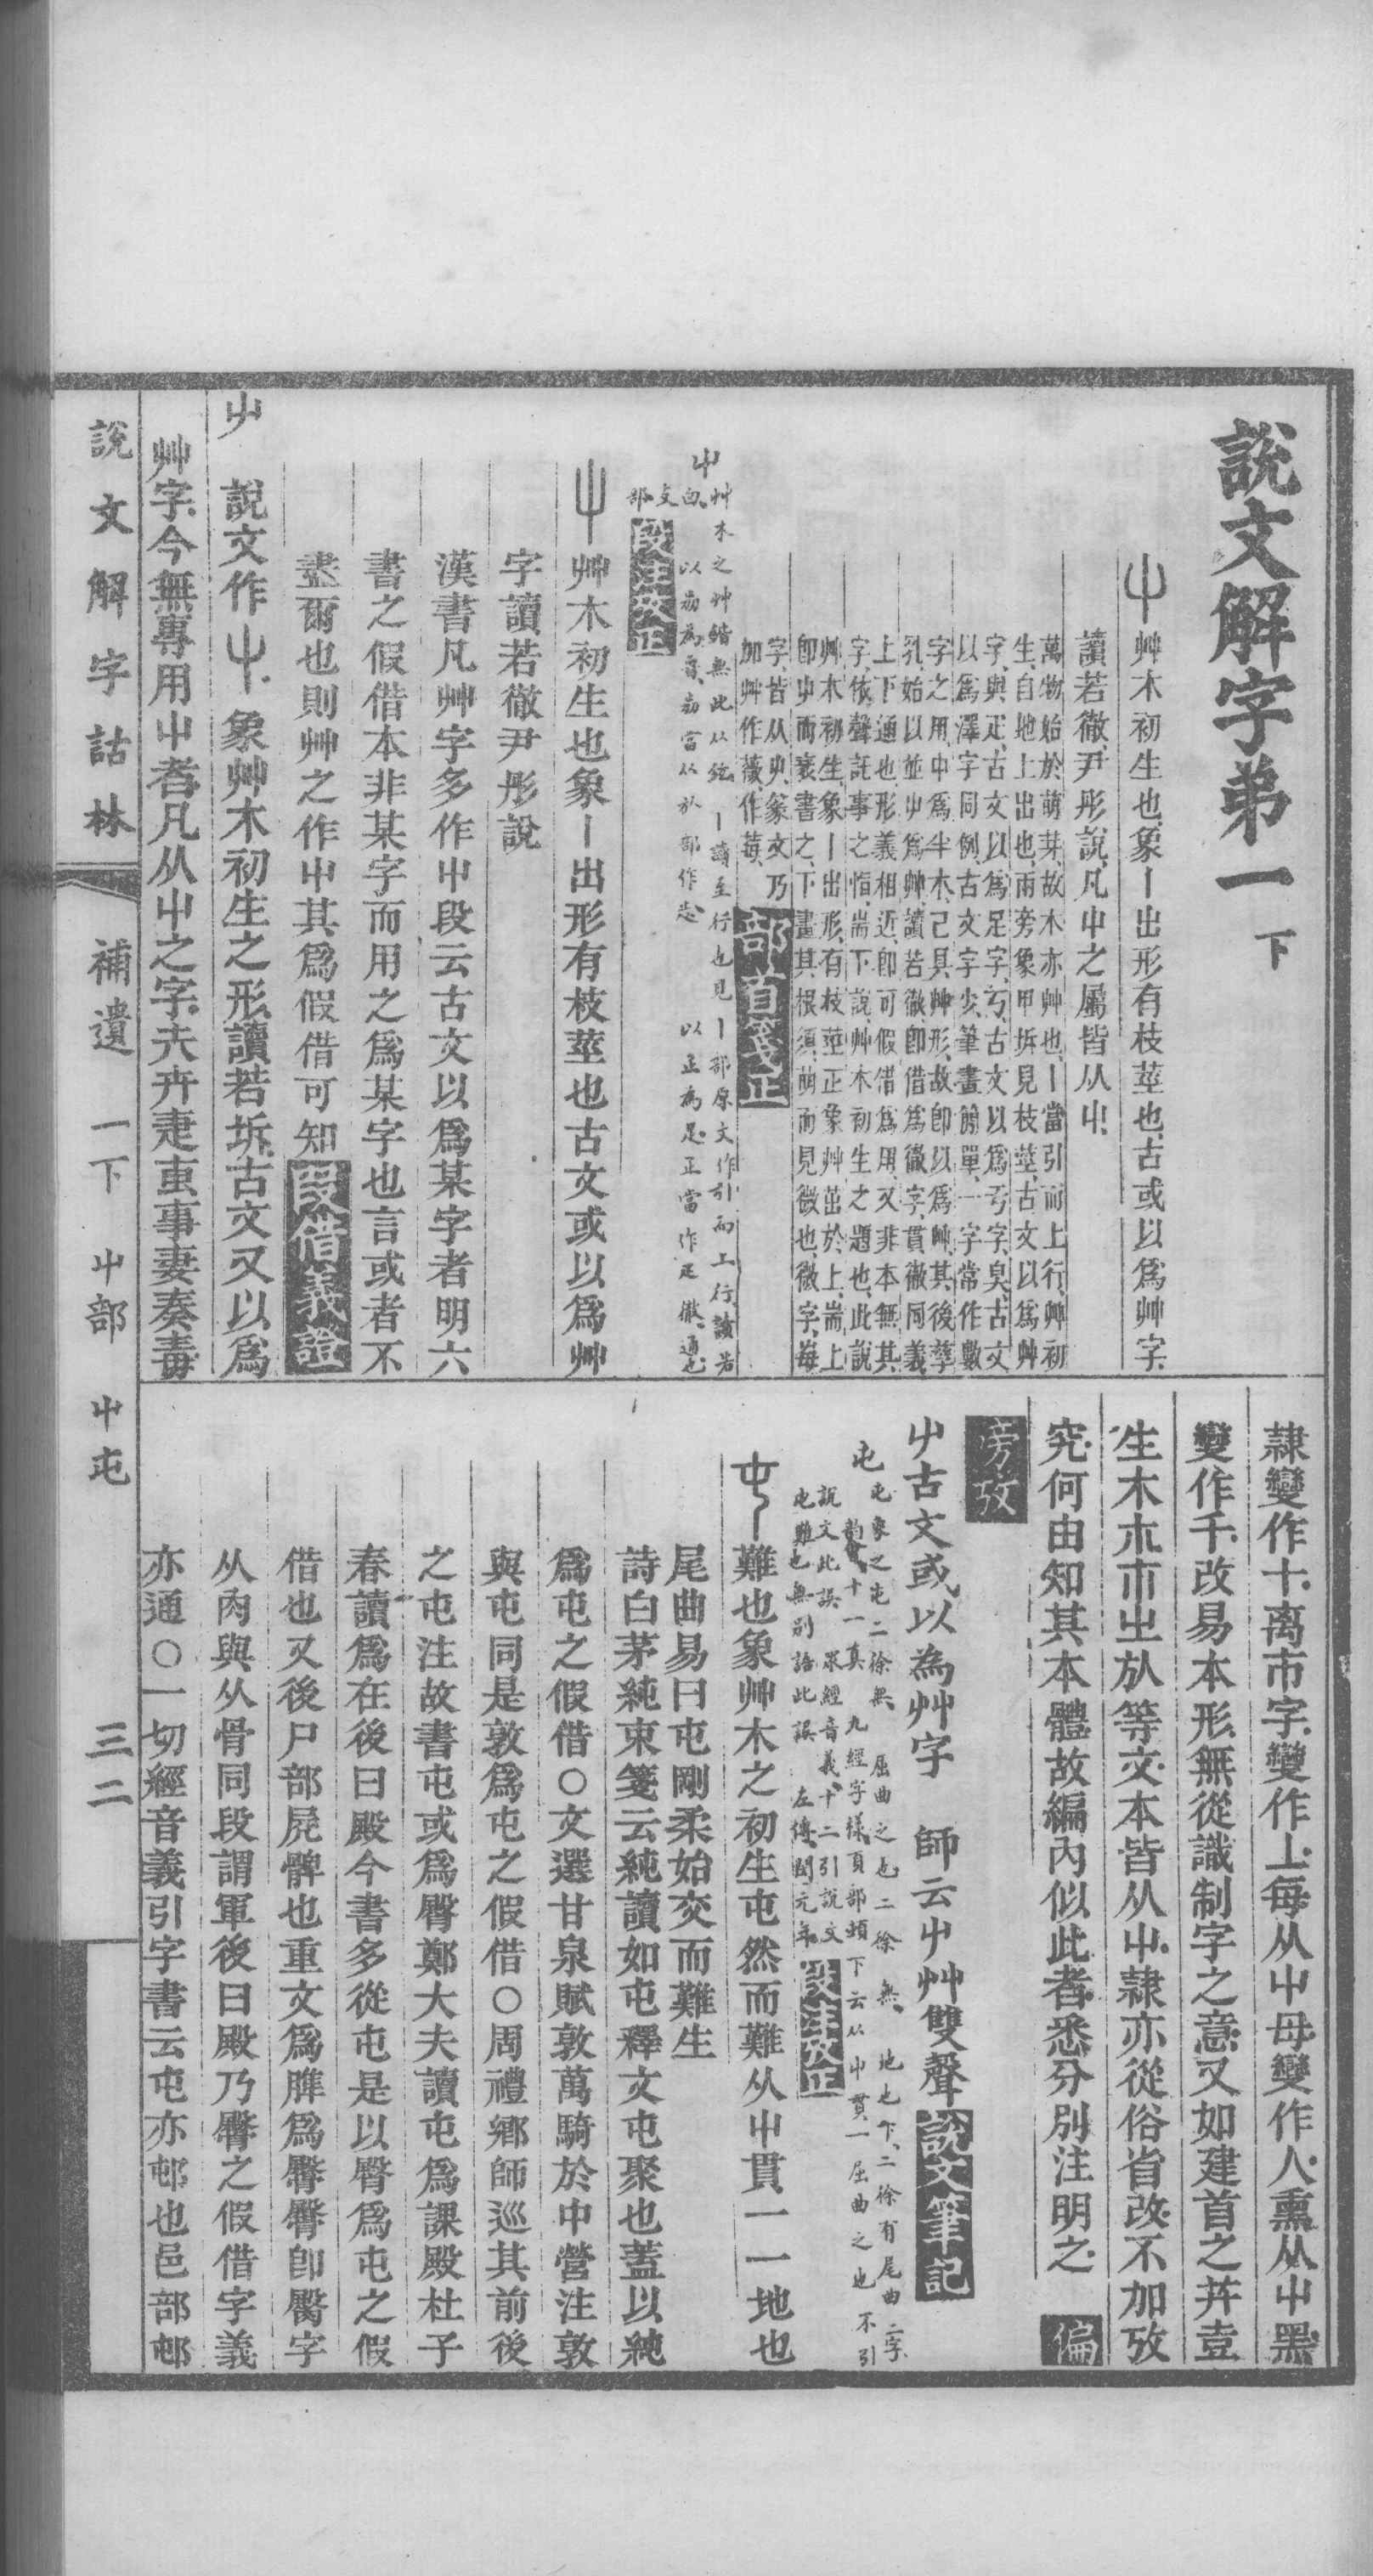 說文解字弟一下
屮艸木初生也、象丨出形有枝莖也、古或以爲艸字、
讀若徹、尹彤說、凡屮之屬皆从屮、
萬物始於萌芽、故木亦艸也、丨當引而上行、艸初
生、自地上出也、兩旁象甲坼見枝莖、古文以爲艸
字、與疋、古文以爲足字、丂、古文以爲亏字、臭、古文
以爲澤字同例、古文字少、筆畫簡單、一字常作數
字之用、屮爲半木、已具艸形、故即以爲艸、其後孳
乳、始以並屮爲艸、讀若徹、卽借爲徹字、貫徹同義、
上下通也、形義相近、卽可假借爲用、又非本無其
字、依聲託事之恉、耑下說、艸木初生之題也、此說
艸木初生、象丨出形、有枝莖、正象艸茁於上、耑上
卽屮而褱書之、下畫其根須、萌而見微也、微字、每
字、皆从屮、篆文乃
加艸作薇、作莓、 部首箋正
屮 艸木之艸 鍇無此 从鉉 丨讀至行也 見丨部 原文作引而上行 讀若
囟 以劦為𦤎、劦當从於部作㫍 以正為𤴓 正當作疋 徹、通也、
支部
段注攷正
屮艸木初生也象丨出形有枝莖也古文或以爲艸
字讀若徹尹彤說
漢書凡艸字多作屮段云古文以爲某字者明六
書之假借本非某字而用之爲某字也言或者不
盡爾也則艸之作屮其爲假借可知 叚借義證
屮 說文作屮、象艸木初生之形、讀若坼、古文又以爲
艸字、今無專用屮者、凡从屮之字、圥卉疌䖝事妻奏毒
隸變作十、离巿字、變作亠、每从屮母、變作人、熏从屮黑、
變作千、改易本形、無從識制字之意、又如建首之芔壴
生木朩巿出㫃等文、本皆从屮、隸亦從俗省改、不加攷
究、何由知其本體、故編內似此者、悉分別注明之、 偏
旁攷
屮古文或以為艸字 師云屮艸雙聲 說文筆記
屯 屯象之屯 二徐無 屈曲之也 二徐無、 地也下、二徐有尾曲二字、
韵會十一真 九經字㨾、頁部頓下云从屮貫一屈曲之也 不引
說文此誤 眾經音義、十二引說文
屯難也無別語此誤 左傳、閔元年、 段注攷正
屯難也象艸木之初生屯然而難从屮貫一一地也
尾曲易曰屯剛柔始交而難生
詩白茅純束箋云純讀如屯釋文屯聚也蓋以純
爲屯之假借○文選甘泉賦敦萬騎於中營注敦
與屯同是敦爲屯之假借○周禮鄉師巡其前後
之屯注故書屯或爲臀鄭大夫讀屯爲課殿杜子
春讀爲在後曰殿今書多從屯是以臀爲屯之假
借也又後尸部屍髀也重文爲脽爲臀臀卽臋字
从肉與从骨同段謂軍後曰殿乃臀之假借字義
亦通○一切經音義引字書云屯亦邨也邑部邨
說文解字詁林 補遺 一下 屮部 屮屯 三二